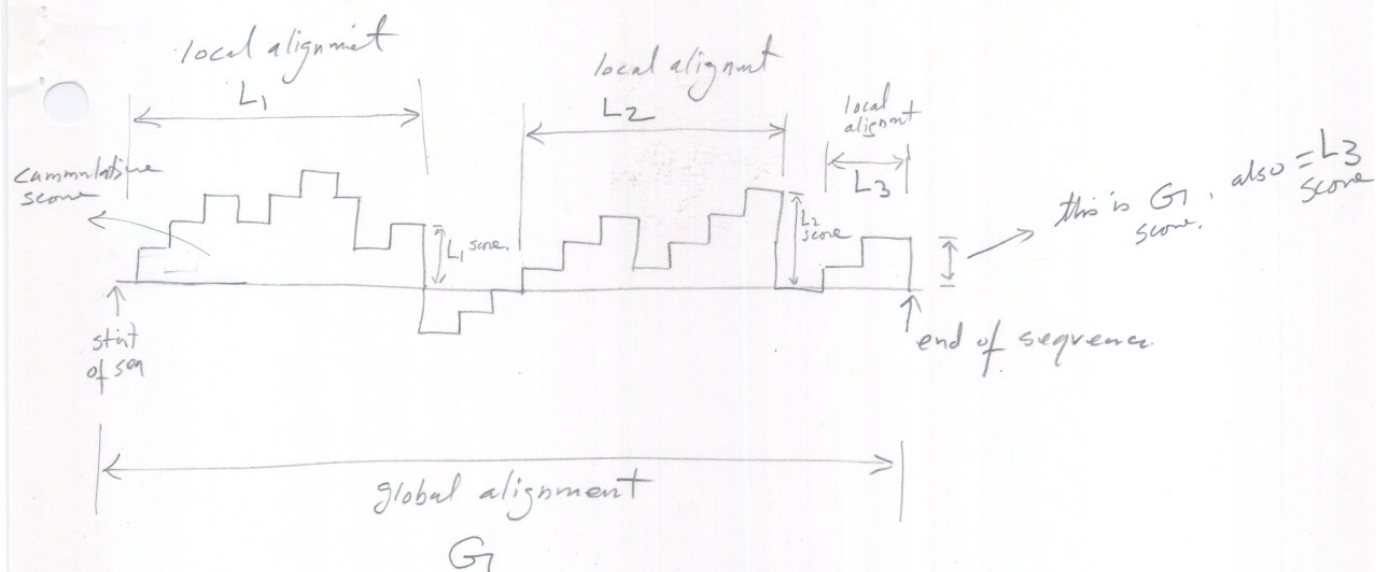 local alignmet
L1
local alignmt
L2
local
alignmt
L3
cammulative
score
L1 score.
L2
score
this is G score.
also = L3
score
start
of seq
end of sequence.
global alignment
G